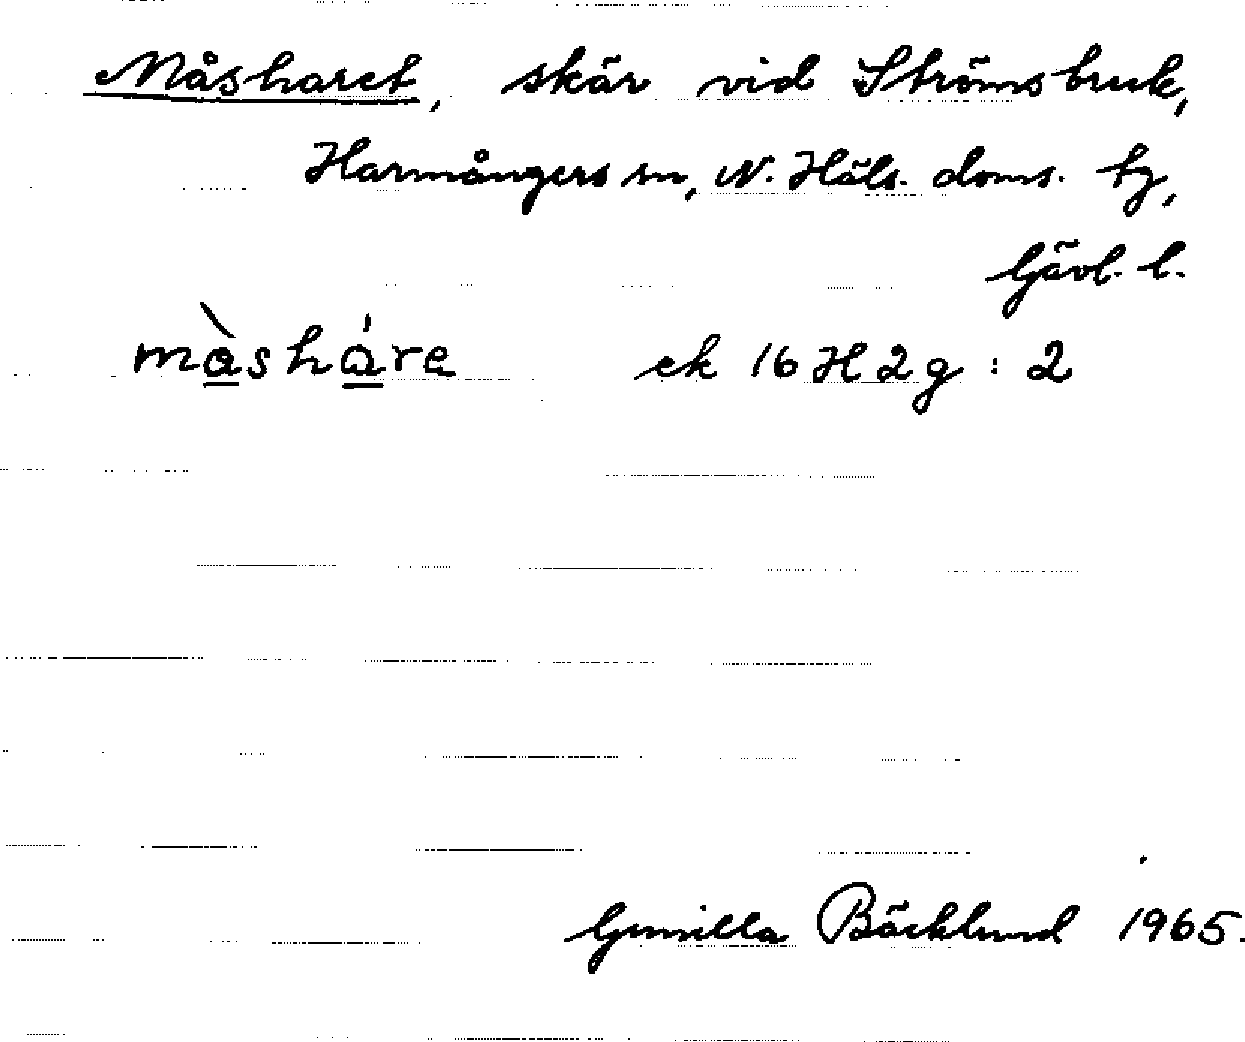 Måsharet, skär vid Strömsbruk,
Harmångers sn, N. Häls. doms. tg,
Gävl. l.
màsháre ek 16 H 2 g : 2
Gunilla Bäcklund 1965.